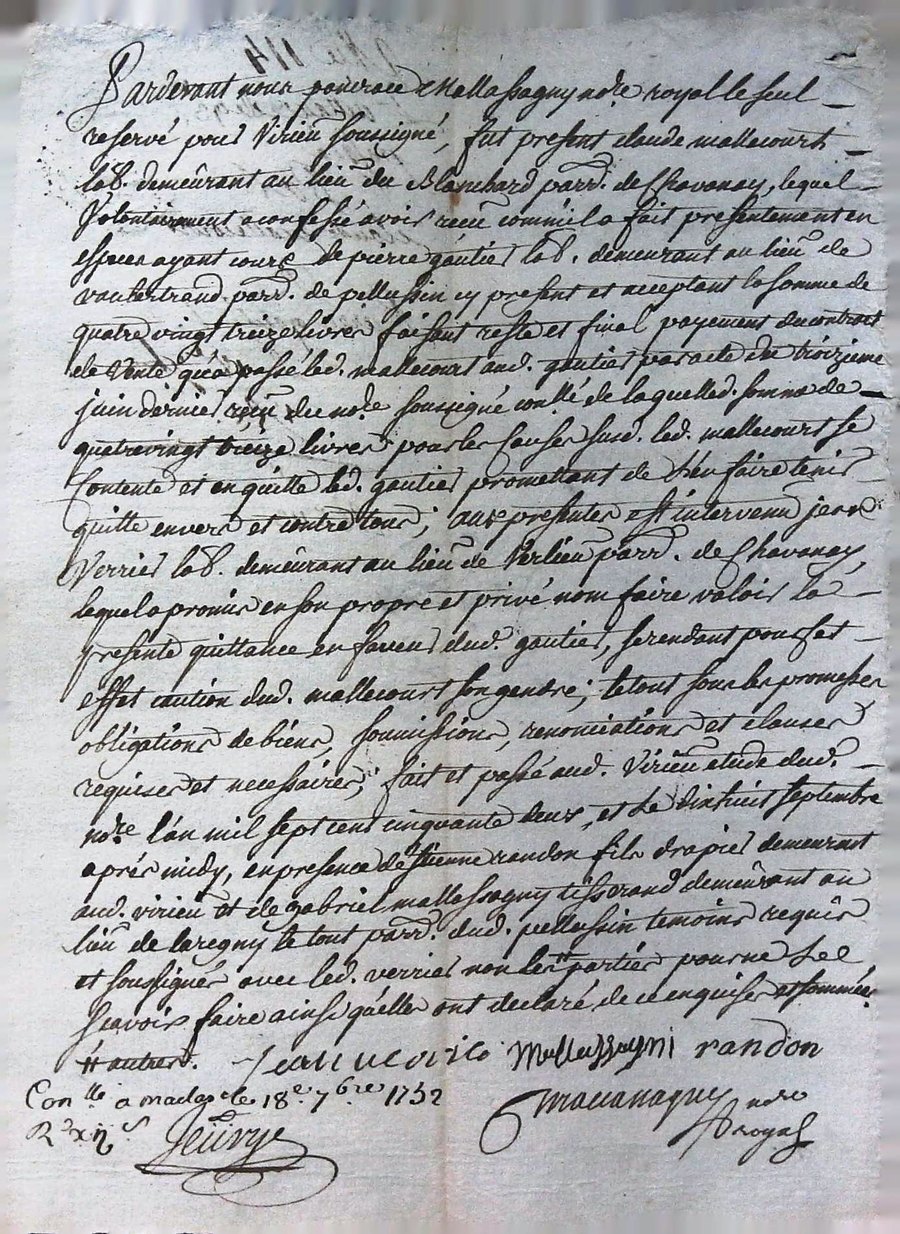 Pardevant nous pancrace Mallassagny no.re royal le seul
reservé pour Virieu soussigné, fut present claude mallecourt
lab. demeurant au lieu du Blanchard parr. de Chavanay, lequel
Volontairement a confessé avoir recu comme il a fait presentement en
especes ayant cours de pierre gautier lab. demeurant au lieu de
vaubertrand parr. de pellussin cy present et acceptant la somme de
quatre vingt treize livres faisant reste et final payement du contract
de Vente qu'a passé led. mallecourt aud. gautier par acte du troizieme
juin dernier recu du no.re soussigné conllé de laquelled. somme de
quatrevingt treize livres pour les causes susd. led. mallecourt se
Contente et en quitte led. gautier promettant de l'en faire tenir
quitte envers et contre tous; aux presentes est intervenu jean
Verrier lab. demeurant au lieu de Verlieu parr. de Chavanay,
lequel a promis en son propre et privé nom faire valoir la
presente quittance en faveur dud. gautier, se rendant pour cet
effet caution dud. mallecourt son gendre; le tout sous les promesses
obligations de biens, soumissions, renonciations et clauses
requises et necessaires; fait et passé aud. Virieu etude dud.
no.re l'an mil sept cent cinquante deux, et le dixhuit septembre
aprés midy, en presence de etienne randon fils drapier demeurant
aud. virieu et de gabriel mallassagny tisserand demeurant au
lieu de laregny le tout parr. dud. pellussin temoins requis
et soussignés avec led. verrier non les parties pour ne le
scavoir faire ainsi qu'elles ont declaré de ce enquises et sommées
# autres. Jean verrie Mallassagni randon
Con.lle a malas le 18.e 7.bre 1752 no.re
R. xij s royal
Jeurye